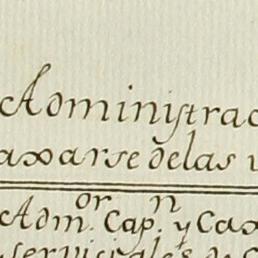 Administrac
axarse delas v
Adm.or Cap.n y Cax
serviciales y C